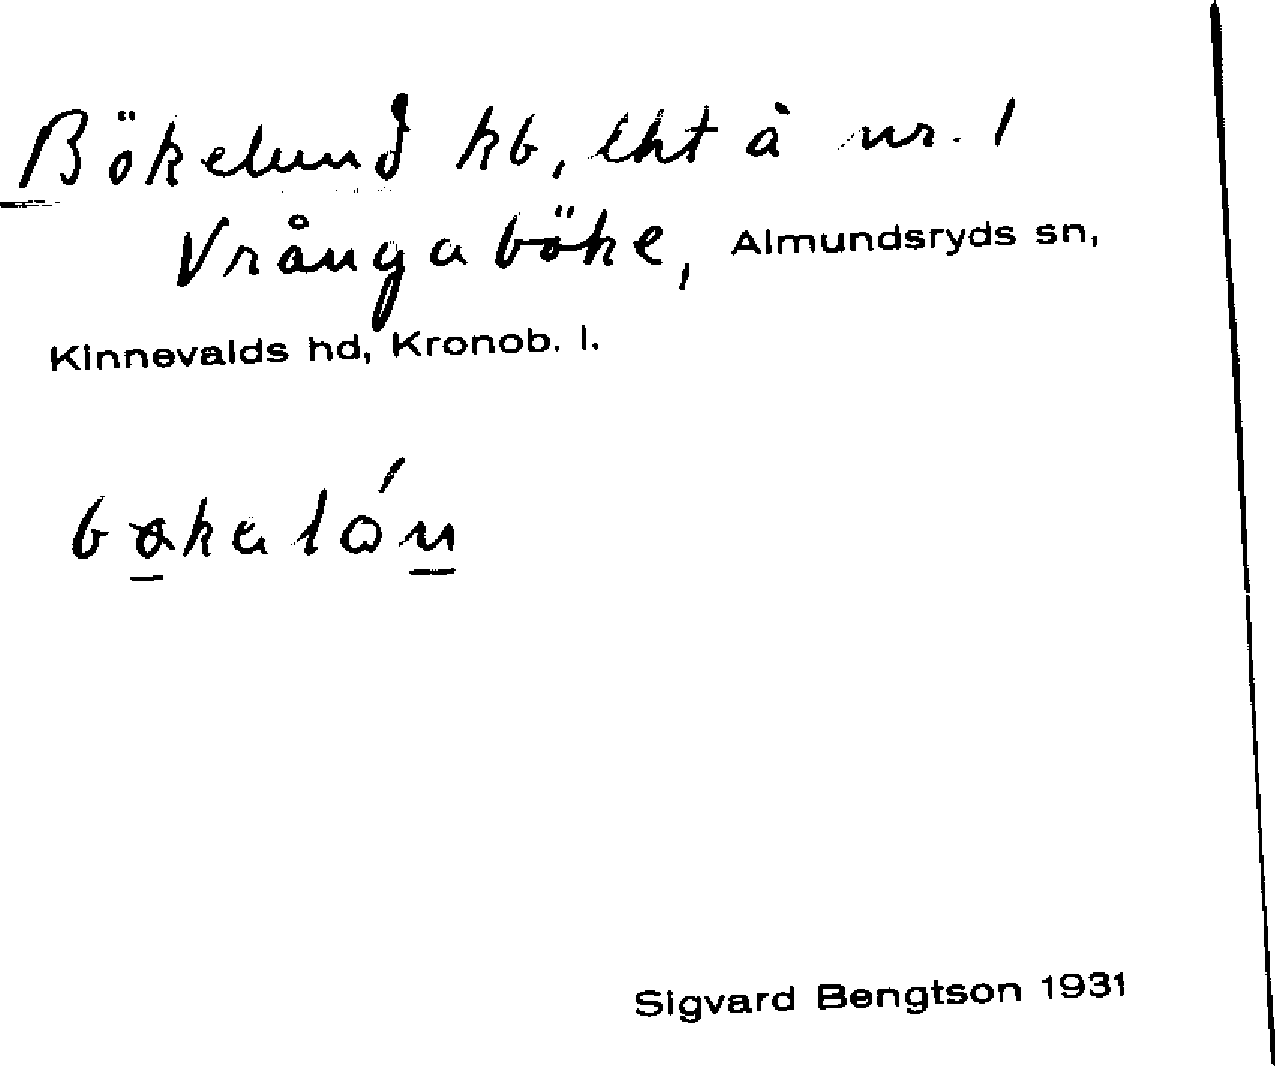 Bökelund kb, lht å nr. 1
Vrångaböke, Almundsryds sn,
Kinnevalds hd, Kronob. l.
Sigvard Bengtson 1931